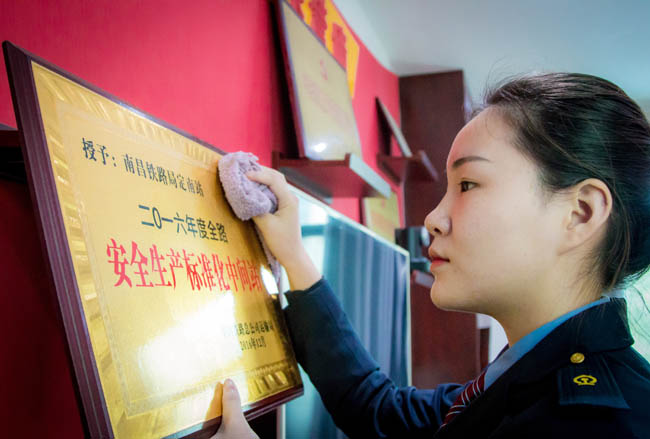 授予：南昌铁路局定南站
二〇一六年度全路
安全生产标准化中间
路总公司运输
2016年12月